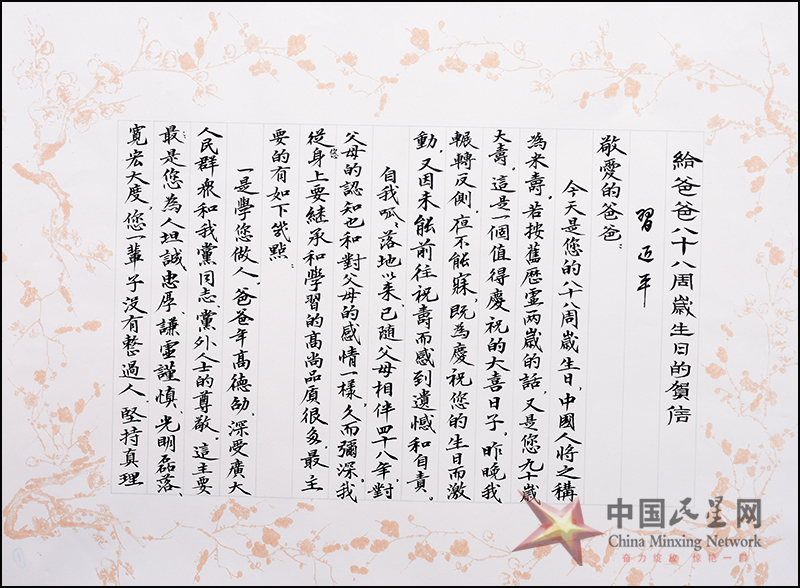 給爸爸八十八周歲生日的賀信
習近平
敬愛的爸爸:
今天是您的八十八周歲生日,中國人將之稱
為米壽。若按舊歷虛兩歲的話,又是您九十歲
大壽。這是一個值得慶祝的大喜日子。昨晚我
輾轉反側,夜不能寐,既為慶祝您的生日而激
動,又因未能前往祝壽而感到遺憾和自責。
自我呱〻落地以來,已隨父母相伴四十八年,對
父母的認知也和對父母的感情一樣,久而彌深,我
從您身上要繼承和學習的高尚品質很多,最主
要的有如下幾點:
一是學您做人。爸爸年高德劭,深受廣大
人民群衆和我黨同志、黨外人士的尊敬。這主要
最是您為人坦誠、忠厚、謙虛謹慎、光明磊落、
寬宏大度。您一輩子沒有整過人,堅持真理
中国民星网
China Minxing Network